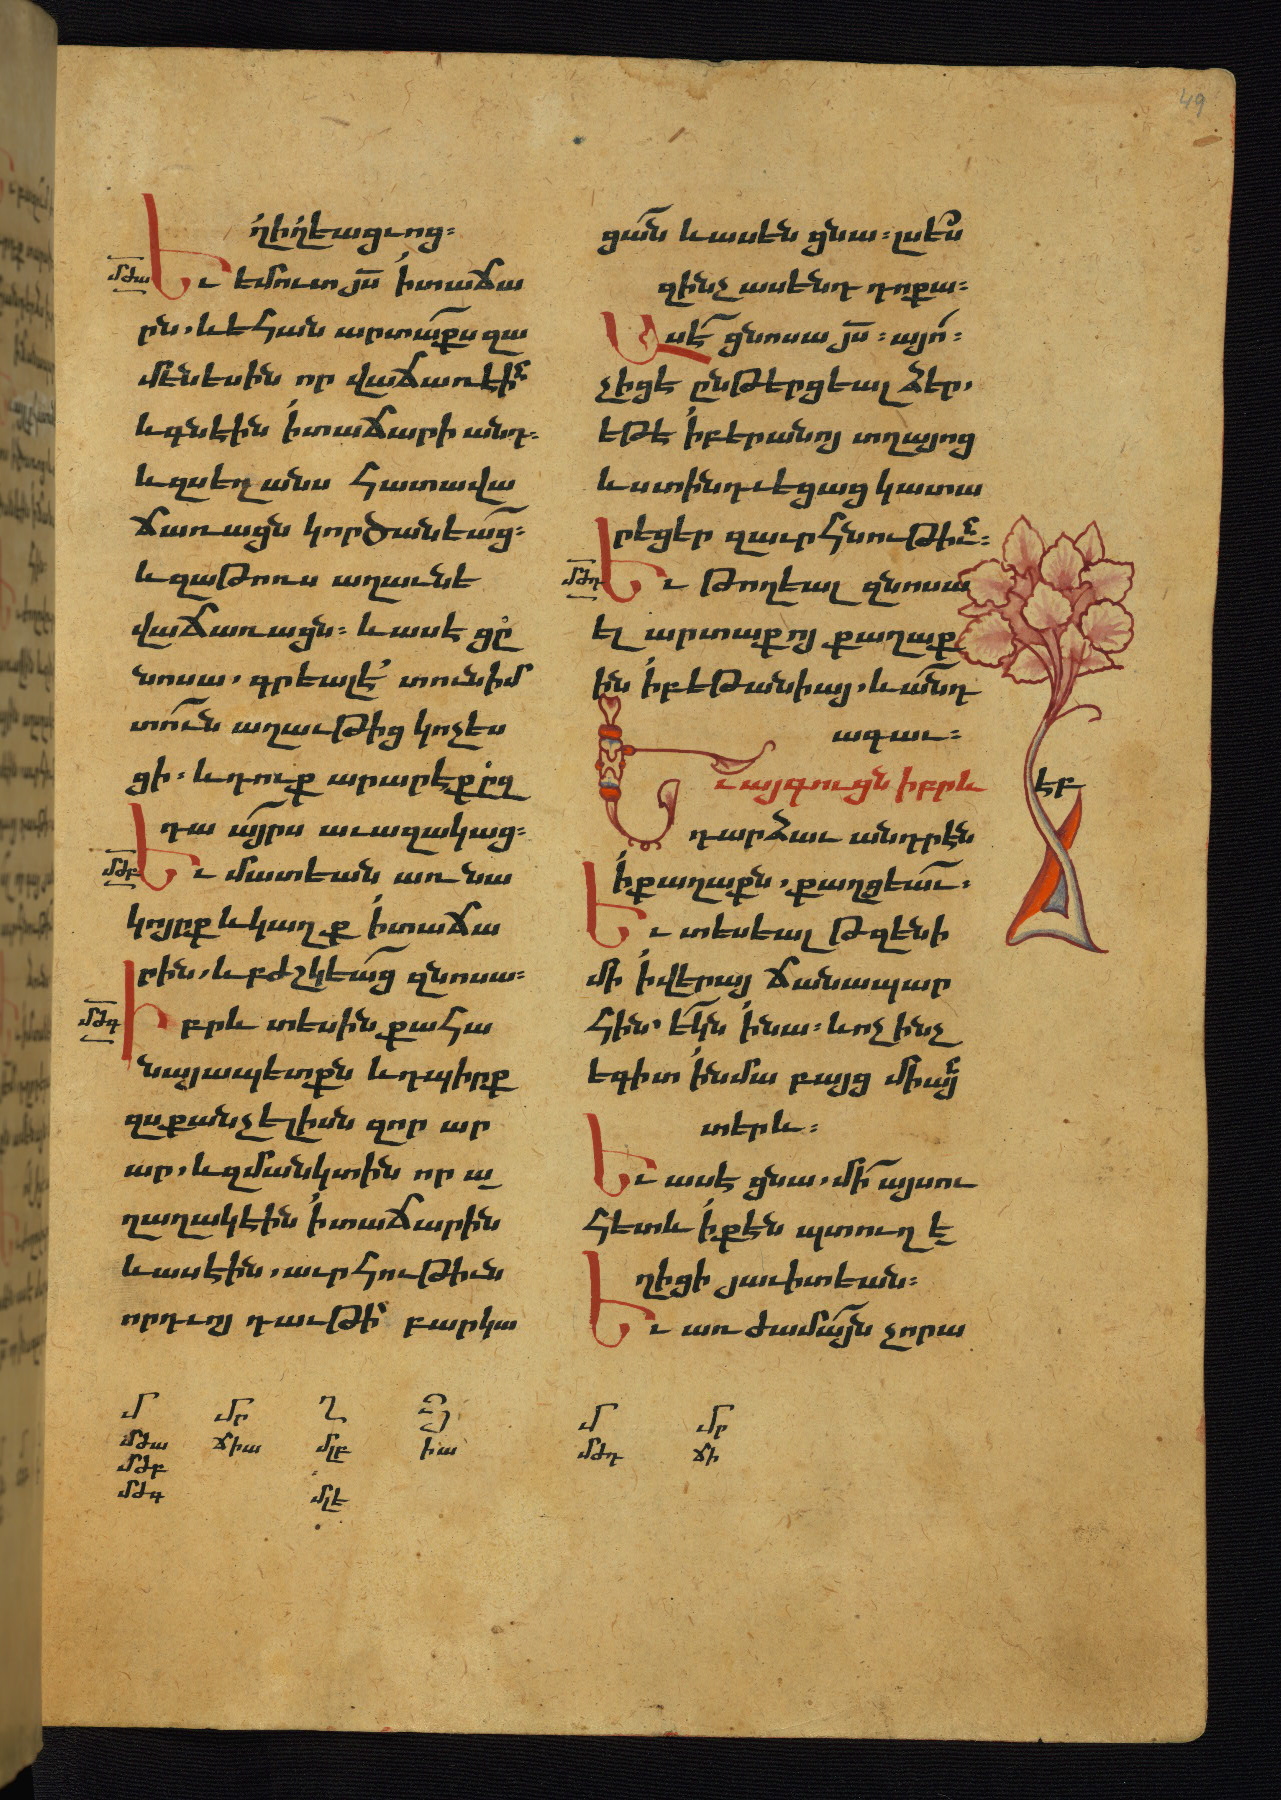 49
ղիղէացւոց։
մժա
Եւ եմուտ յս՟ ի տաճա
րն, և եհան արտա՟քս զա
մենեսին որ վաճառէին
և գնէին ի տաճարի անդ։
և զսեղանս հատավա
ճառացն կործանեա՟ց։
և զաթոռս աղաւնե
վաճառացն։ և ասէ ցը
նոսա, գրեալ է՟ տուն իմ
տո՟ւն աղաւթից կոչես
ցի։ և դուք արարէք ըզ
դա այրս աւազակաց։
մժբ
Եւ մատեան առ նա
կոյրք և կաղք ի տաճա
րին, և բժշկեա՟ց զնոսա։
մժգ
Իբրև տեսին քահա
նայապետքն և դպիրք
զսքանչելիսն զոր ար
ար, և զմանկտին որ ա
ղաղակէին ի տաճարին
և ասէին, աւրհութիւն
որդւոյ դաւթի՟ բարկա
մ մր ղ
մժա ճիա մլբ իա
մժբ
մժգ մլե
ցա՟ն և ասեն ցնա։ լսե՟ս
զինչ ասենդ դոքա։
Ասէ՟ ցնոսա յս՟։ այո՟։
չիցէ ընթերցեալ ձեր,
եթէ ի բերանոյ տղայոց
և ստինդւեցաց կատա
րեցեր զաւրհնութի՟ւն։
մժդ
Եւ թողեալ զնոսա
ել արտաքոյ քաղաք
ին ի բեթանիայ, և ա՟նդ
ագաւ։
Եւ այգուցն իբրև էբ
դարձաւ անդրէն
ի քաղաքն, քաղցեա՟ւ,
Եւ տեսեալ թզենի
մի ի վերայ ճանապար
հին՝ ե՟կն ի նա։ և ոչ ինչ
եգիտ ի նմա բայց միայն
տերև։
Եւ ասէ ցնա, մի՟ այսու
հետև ի քէն պտուղ ե
ղիցի յաւիտեան։
Եւ առժամա՟յն չորա
մ մր
մժդ ճի